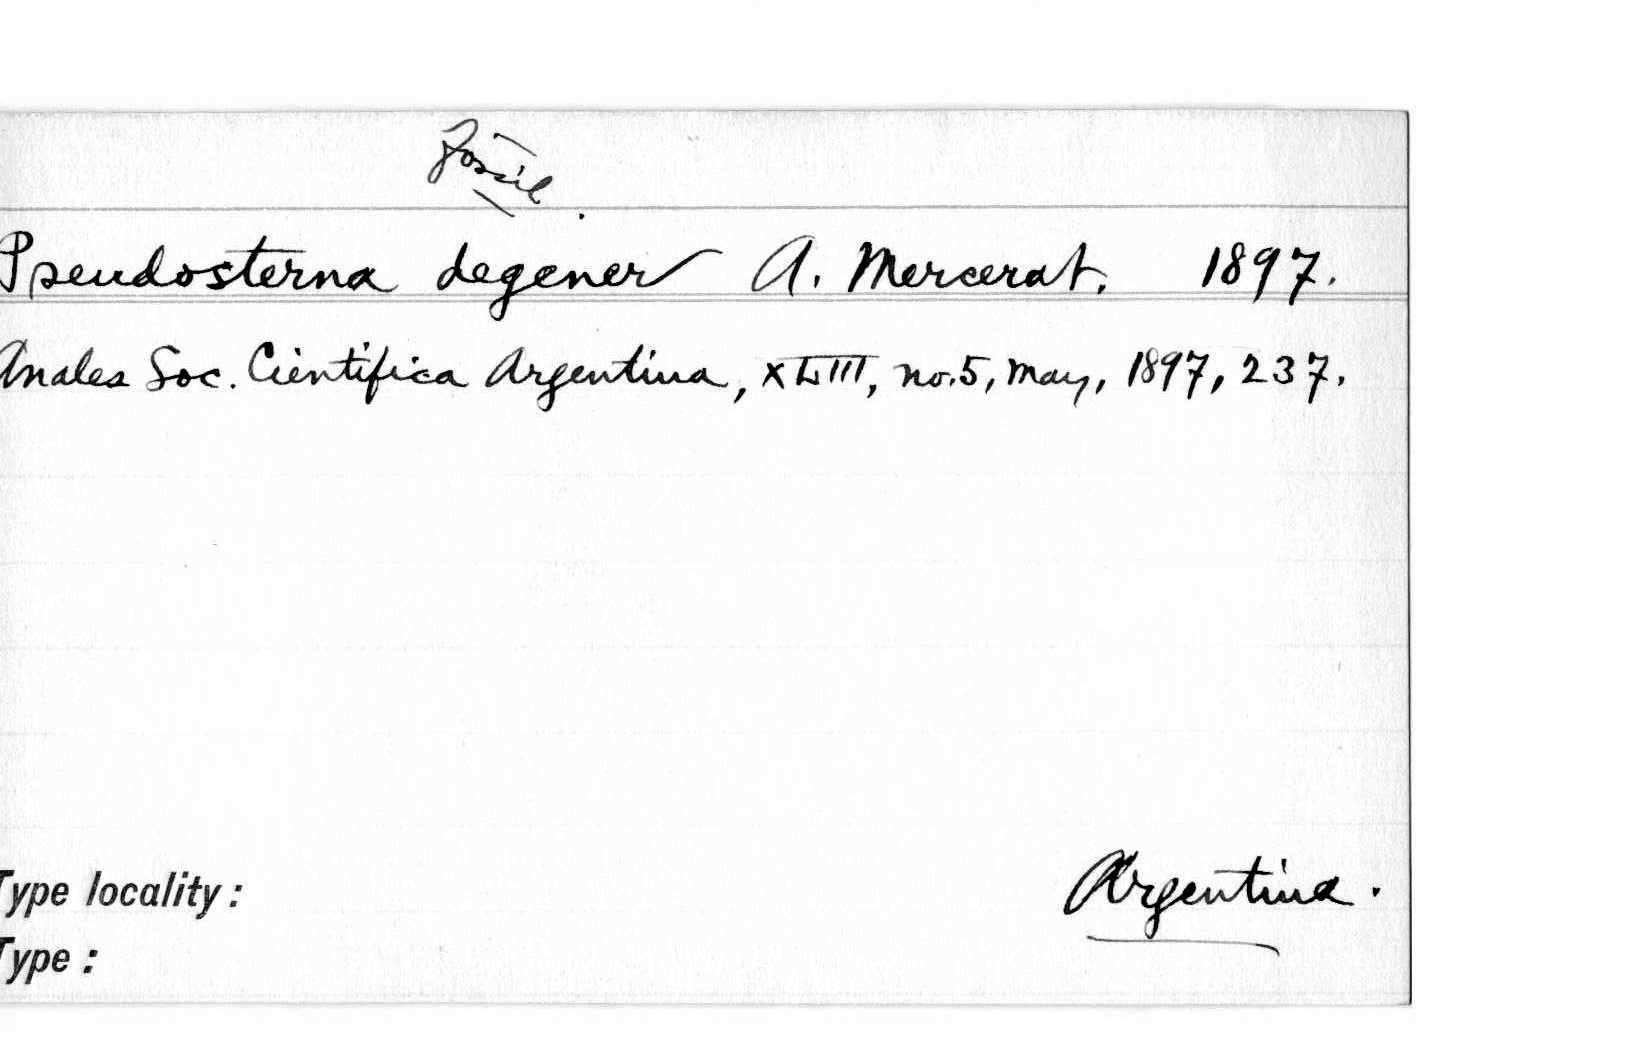 fossil.
Pseudosterna degener A. Mercerat. 1897.
Anales Soc. Cientifica Argentina, XLIII, no.5, May, 1897, 237.
Type locality: Argentina.
Type: